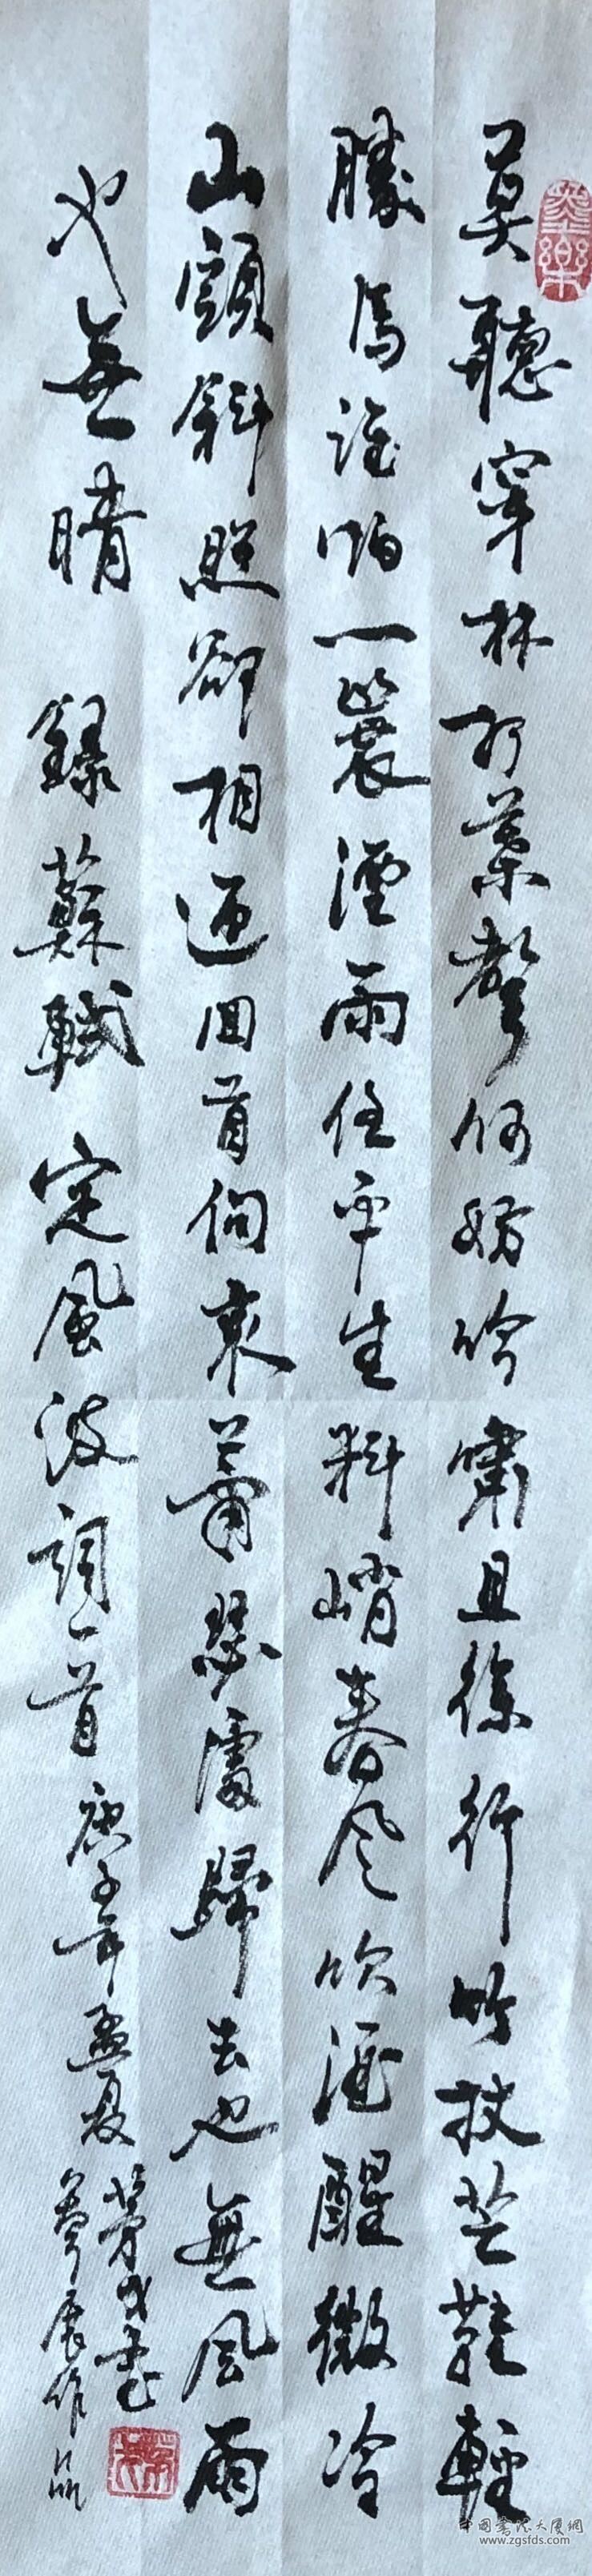 莫聽穿林打葉聲何妨吟嘯且徐行竹杖芒鞋輕
勝馬誰怕一蓑湮雨任平生料峭春風吹酒醒微冷
山頭斜照卻相迎回首向來蕭瑟處歸去也無風雨
也無晴 錄蘇軾定風波詞一首 庚子年孟夏
展作品
中國書法大廈網
www.zgsfds.com